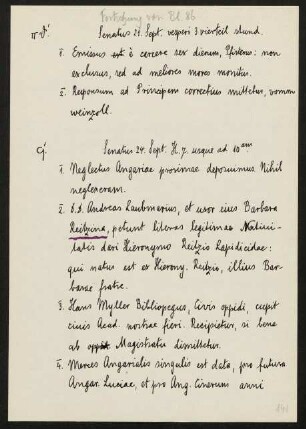 Fortsetzung von Bl. 86
Senatus 21. Sept. vesperi 3 vierteil stund.
1. Emissus est è carcere sex dierum, Pfisterus: non
exclusus, sed ad meliores mores monitus.
2. Responsum ad Principem correctius mittetur, vomm
weinzoll.
Senatus 24. Sept. H. 7. usque ad 10am
1. Neglectus Angariae proximae deposuimus Nihil
neglexeram.
2. D. D. Andreas Laubmarius, et uxor eius Barbara
Reitzina, petunt literas legitimae Nativi-
tatis dari Hieronymo Reitzio Lapidicidae:
qui natus est ex Hierony. Reitzio, illius Bar-
barae fratre.
3. Hans Myller Bibliopegus, Civis oppidi, cupit
civis Acad. nostrae fieri. Recipietur, si bene
ab Magistratu dimittetur.
4. Merces Angarialis singulis est data, pro futura
Angar. Luciae, et pro Ang. Cinerum anni